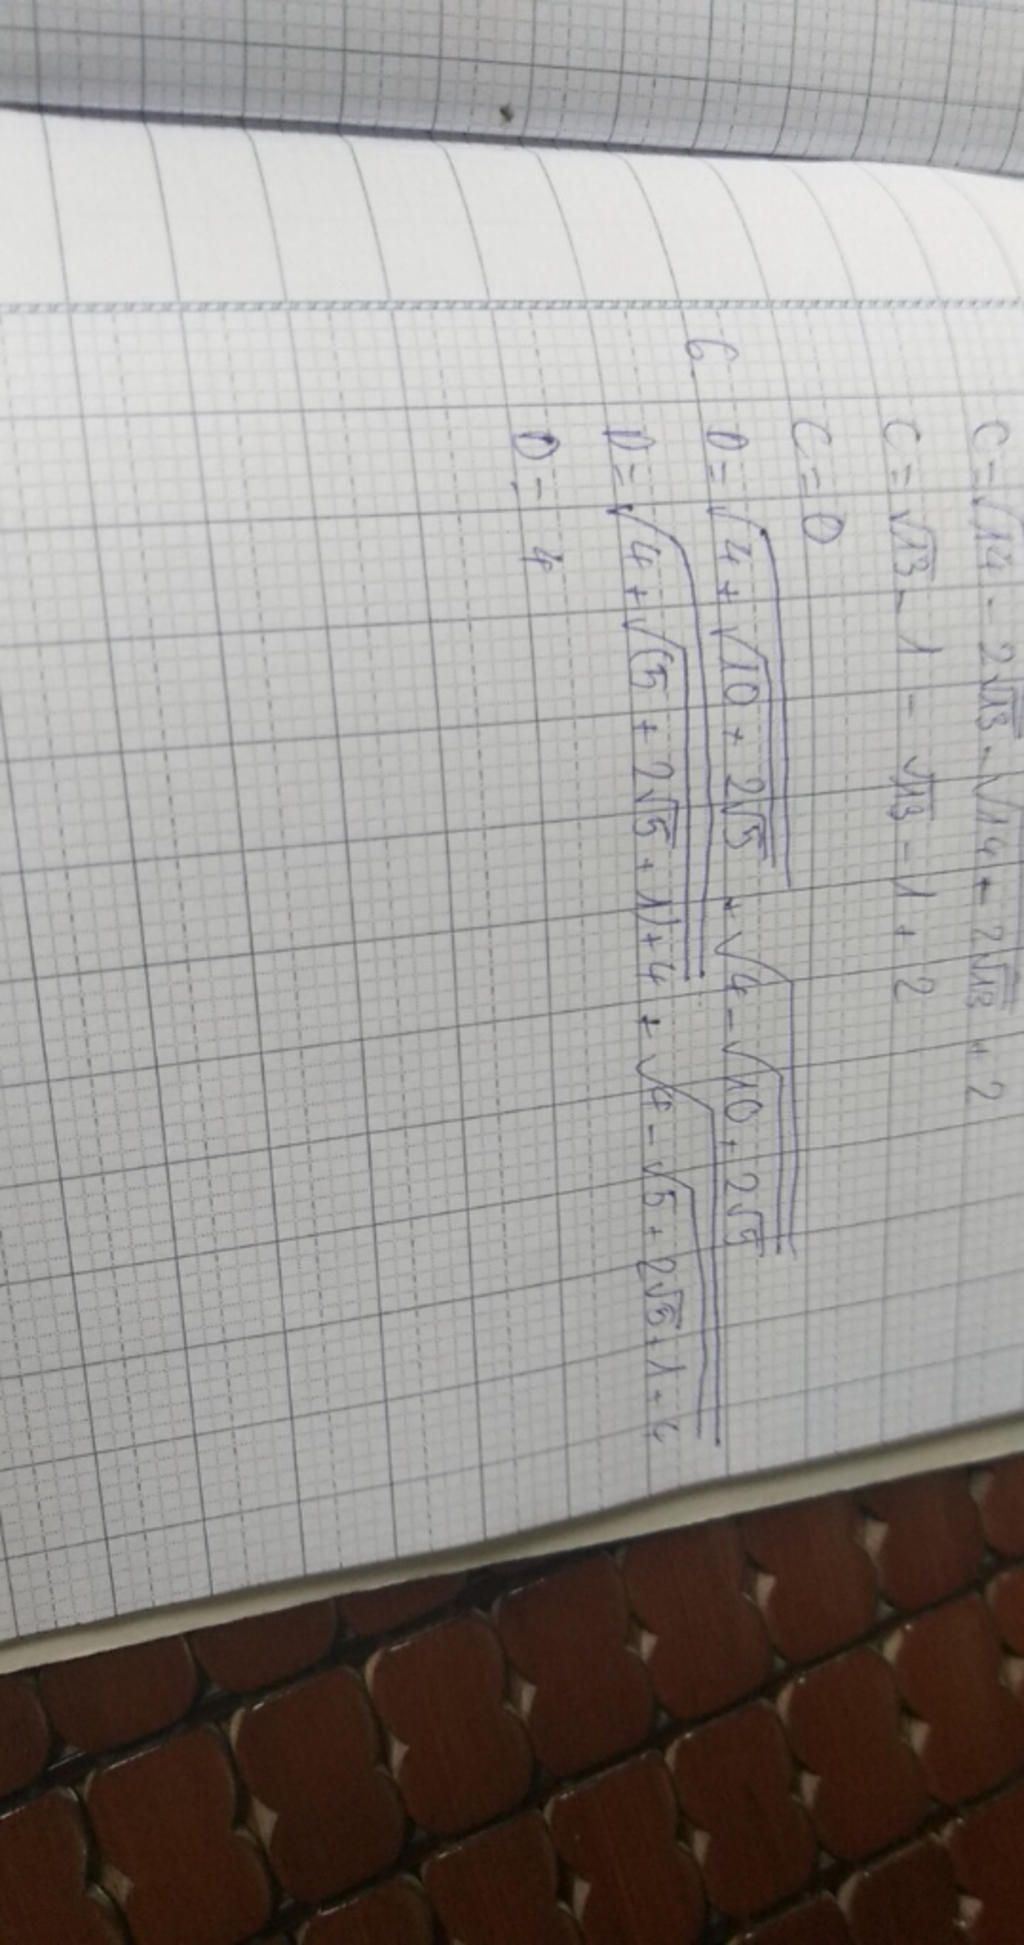 C = √14 - 2√13 - √14 + 2√13 + 2
C = √13 - 1 - √13 - 1 + 2
C = 0
6 D = √4 + √10 + 2√5 + √4 - √10 + 2√5
D = √4 + √(5 + 2√5 + 1) + 4 + √4 - √5 + 2√5 + 1 + 4
D = 4